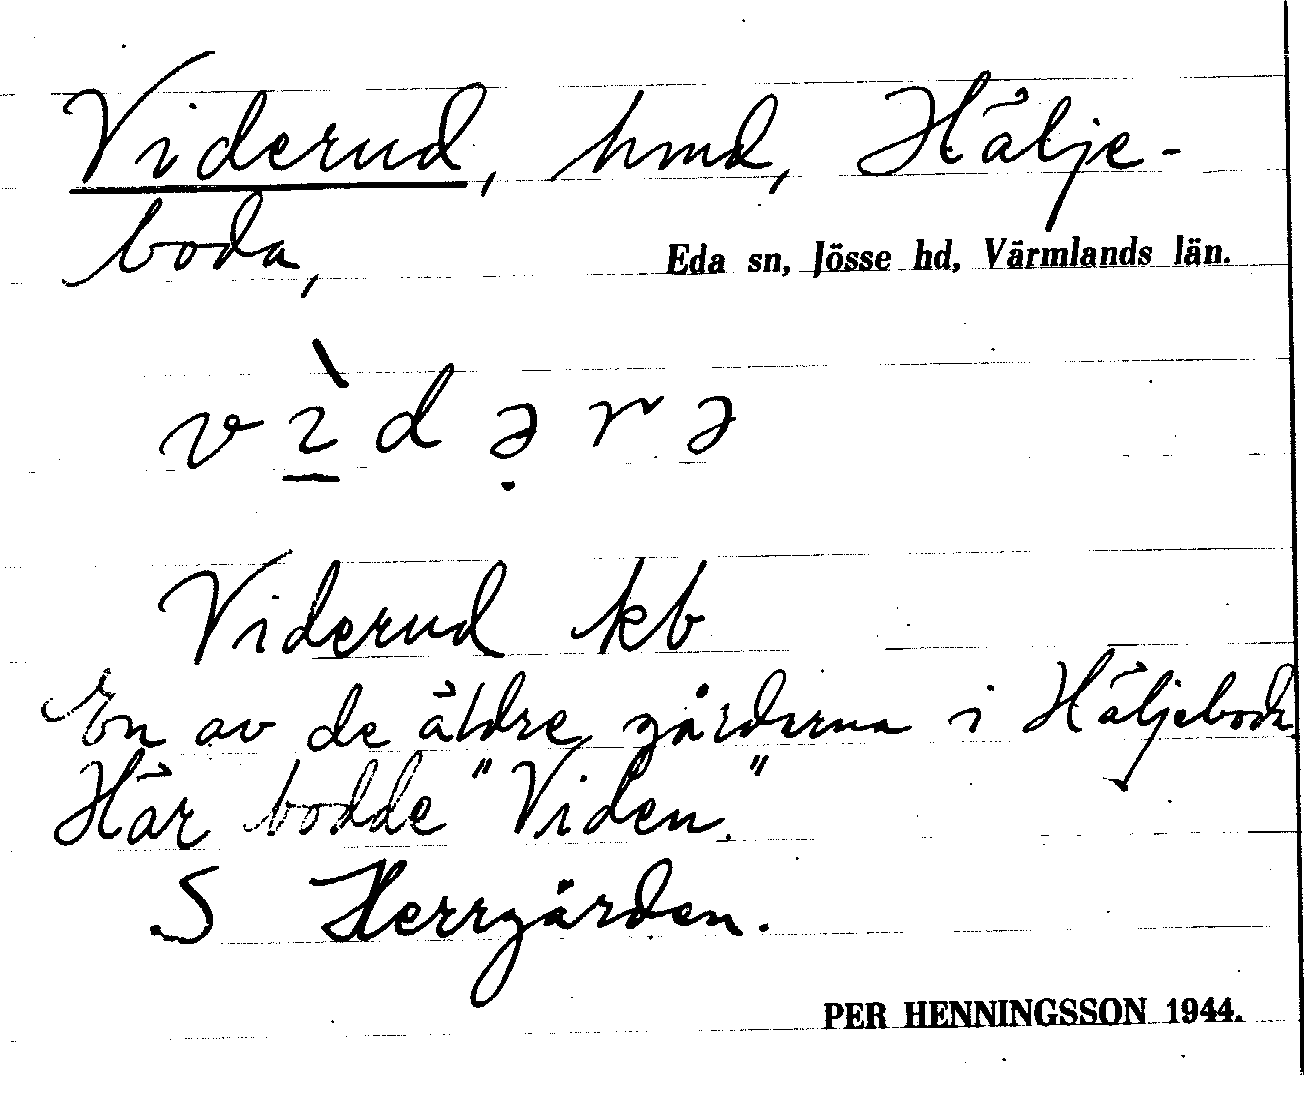 Viderud, hmd, Hälje-
boda,
Eda sn, Jösse hd, Värmlands län.
vı̠̀də̣rə
Viderud kb
En av de äldre gårderna i Häljeboda
Här bodde "Viden."
S Herrgården.
PER HENNINGSSON 1944.